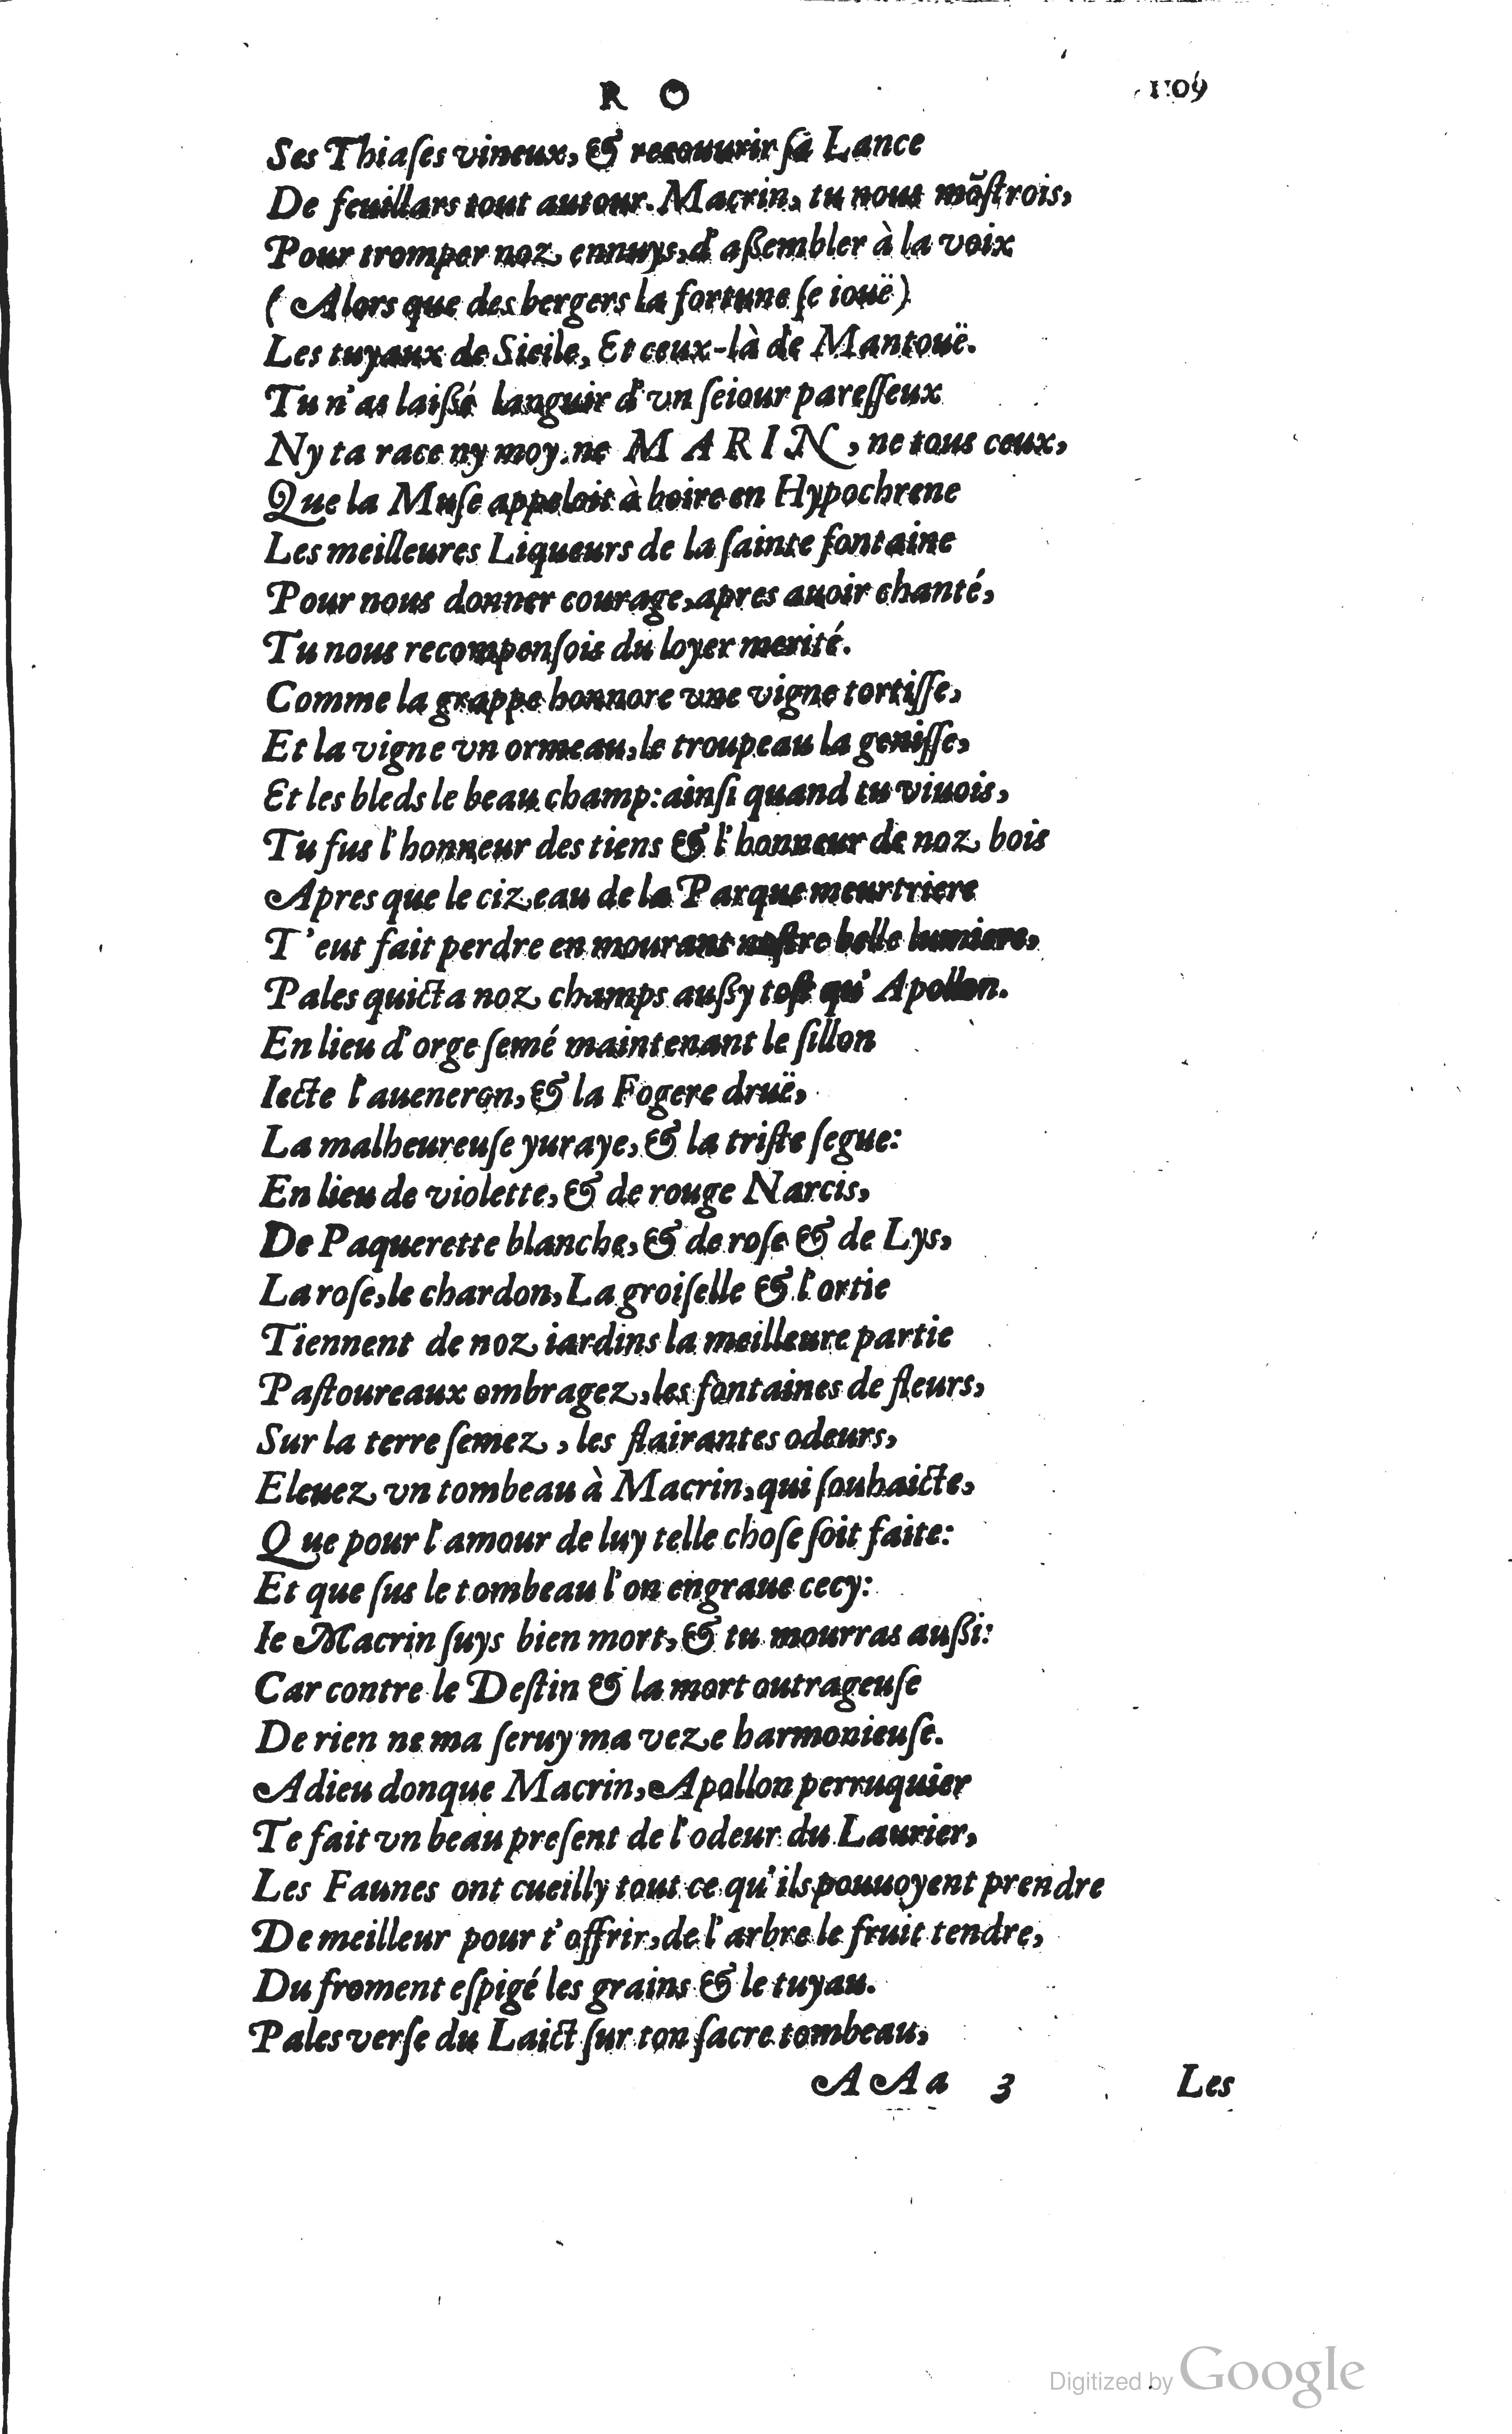 R O 1109
Ses Thiaſes vineux, & recouurir ſa Lance
De feuillars tout autour. Macrin, tu nous mõſtrois,
Pour tromper noz ennuys, d'aßembler à la voix
(Alors que des bergers la fortune ſe iouë)
Les tuyaux de Sicile, Et ceux-là de Mantouë.
Tu n'as laißé languir d'vn ſeiour pareſſeux
Ny ta race ny moy. ne MARIN, ne tous ceux,
Que la Muſe appeloit à boire en Hypochrene
Les meilleures Liqueurs de la ſainte fontaine
Pour nous donner courage, apres auoir chanté,
Tu nous recompenſois du loyer merité.
Comme la grappe honnore vne vigne tortiſſe,
Et la vigne vn ormeau, le troupeau la geniſſe,
Et les bleds le beau champ: ainſi quand tu viuois,
Tu fus l'honneur des tiens & l'honneur de noz bois
Apres que le cizeau de la Parque meurtriere
T'eut fait perdre en mourant noſtre belle lumiere,
Pales quicta noz champs außy toſt qu'Apollon.
En lieu d'orge ſemé maintenant le ſillon
Iecte l'aueneron, & la Fogere druë,
La malheureuſe yuraye, & la triſte ſegue:
En lieu de violette, & de rouge Narcis,
De Paquerette blanche, & de roſe & de Lys,
La roſe, le chardon, La groiſelle & l'ortie
Tiennent de noz iardins la meilleure partie
Paſtoureaux ombragez, les fontaines de fleurs,
Sur la terre ſemez, les flairantes odeurs,
Eleuez vn tombeau à Macrin, qui ſouhaicte,
Que pour l'amour de luy telle choſe ſoit faite:
Et que ſus le tombeau l'on engraue cecy:
Ie Macrin ſuys bien mort, & tu mourras außi:
Car contre le Deſtin & la mort outrageuſe
De rien ne ma ſeruy ma veze harmonieuſe.
Adieu donque Macrin, Apollon perruquier
Te fait vn beau preſent de l'odeur du Laurier,
Les Faunes ont cueilly tout ce qu'ils pouuoyent prendre
De meilleur pour t'offrir, de l'arbre le fruit tendre,
Du froment eſpigé les grains & le tuyau.
Pales verſe du Laict ſur ton ſacre tombeau,
AAa 3 Les
Digitized by Google